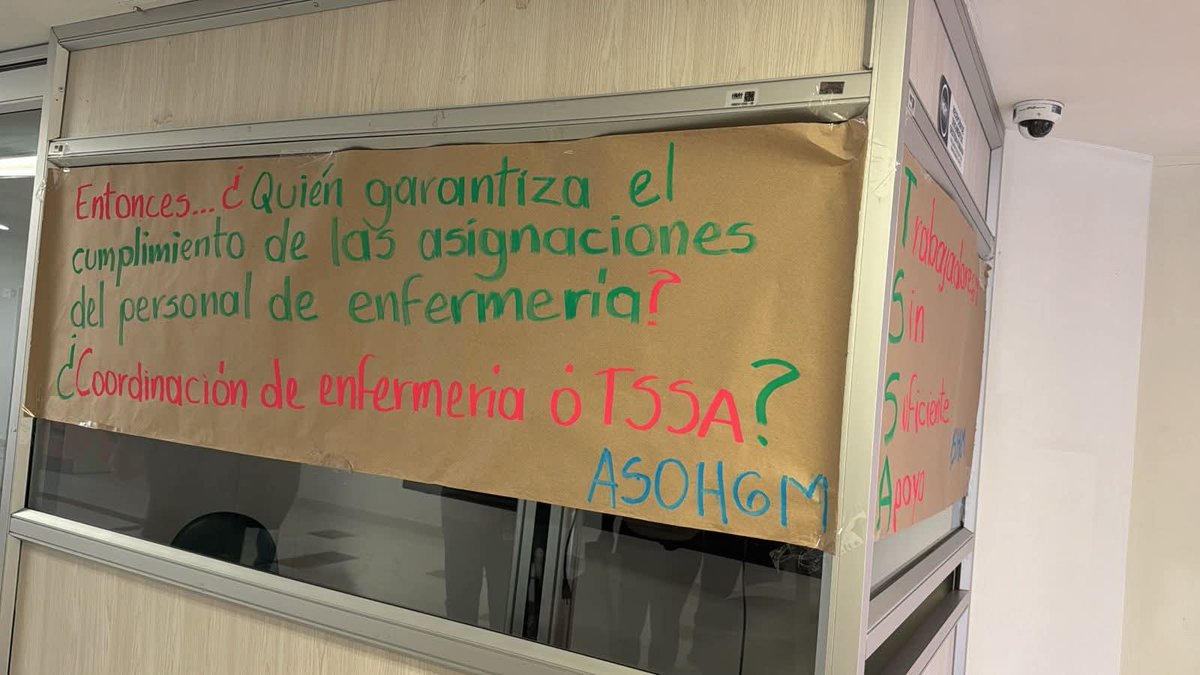 Entonces...¿Quién garantiza el
cumplimiento de las asignaciones
del personal de enfermería?
¿Coordinación de enfermeria ó TSSA?
ASOHGM
Trabajadores
Sin
Suficiente
Apoyo